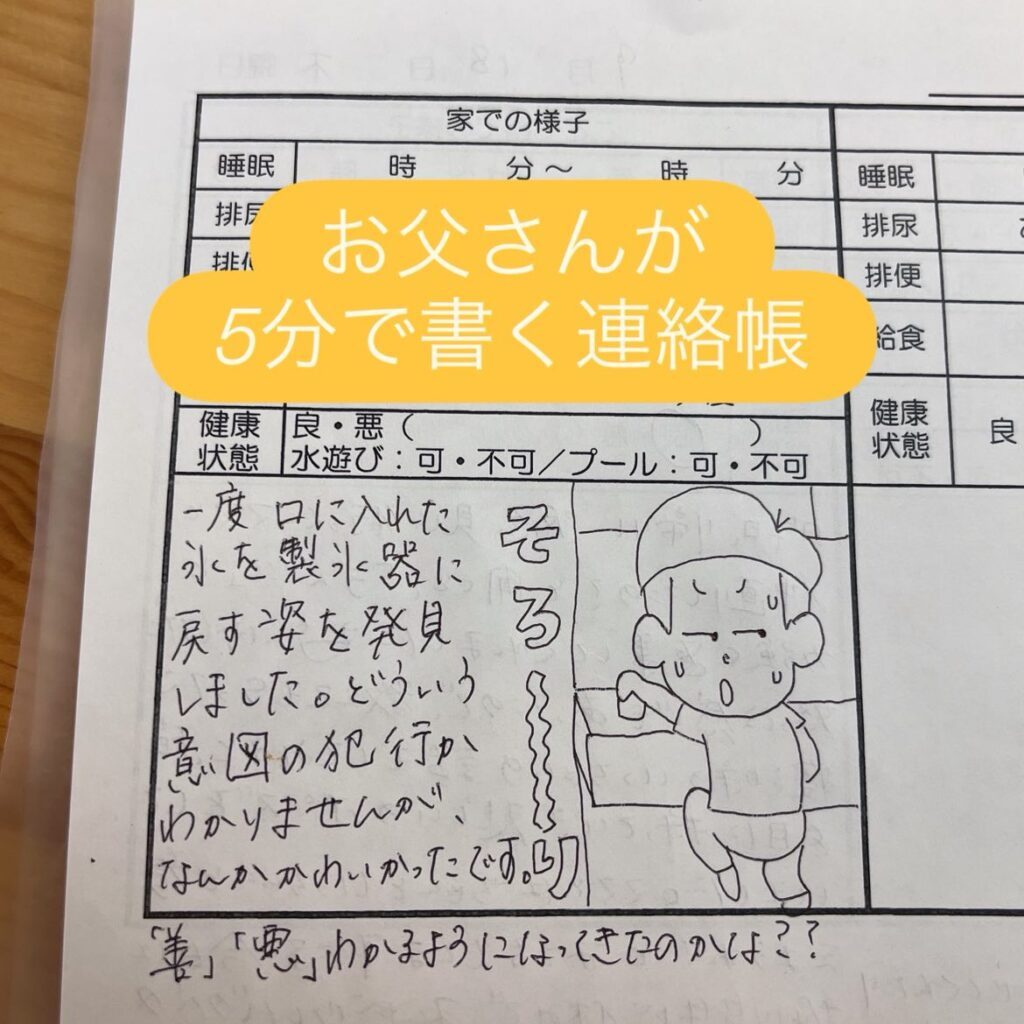 家での様子
睡眠 時 分～ 時 分
睡眠
排尿
排尿
排便
排便
お父さんが
5分で書く連絡帳
給食
健康状態
良・悪（ ）
水遊び：可・不可／プール：可・不可
健康状態
良
一度口に入れた
氷を製氷器に
戻す姿を発見
しました。どういう
意図の犯行か
わかりませんが、
なんかかわいかったです。
そろ〜り
「善」「悪」わかるようになってきたのかな？？